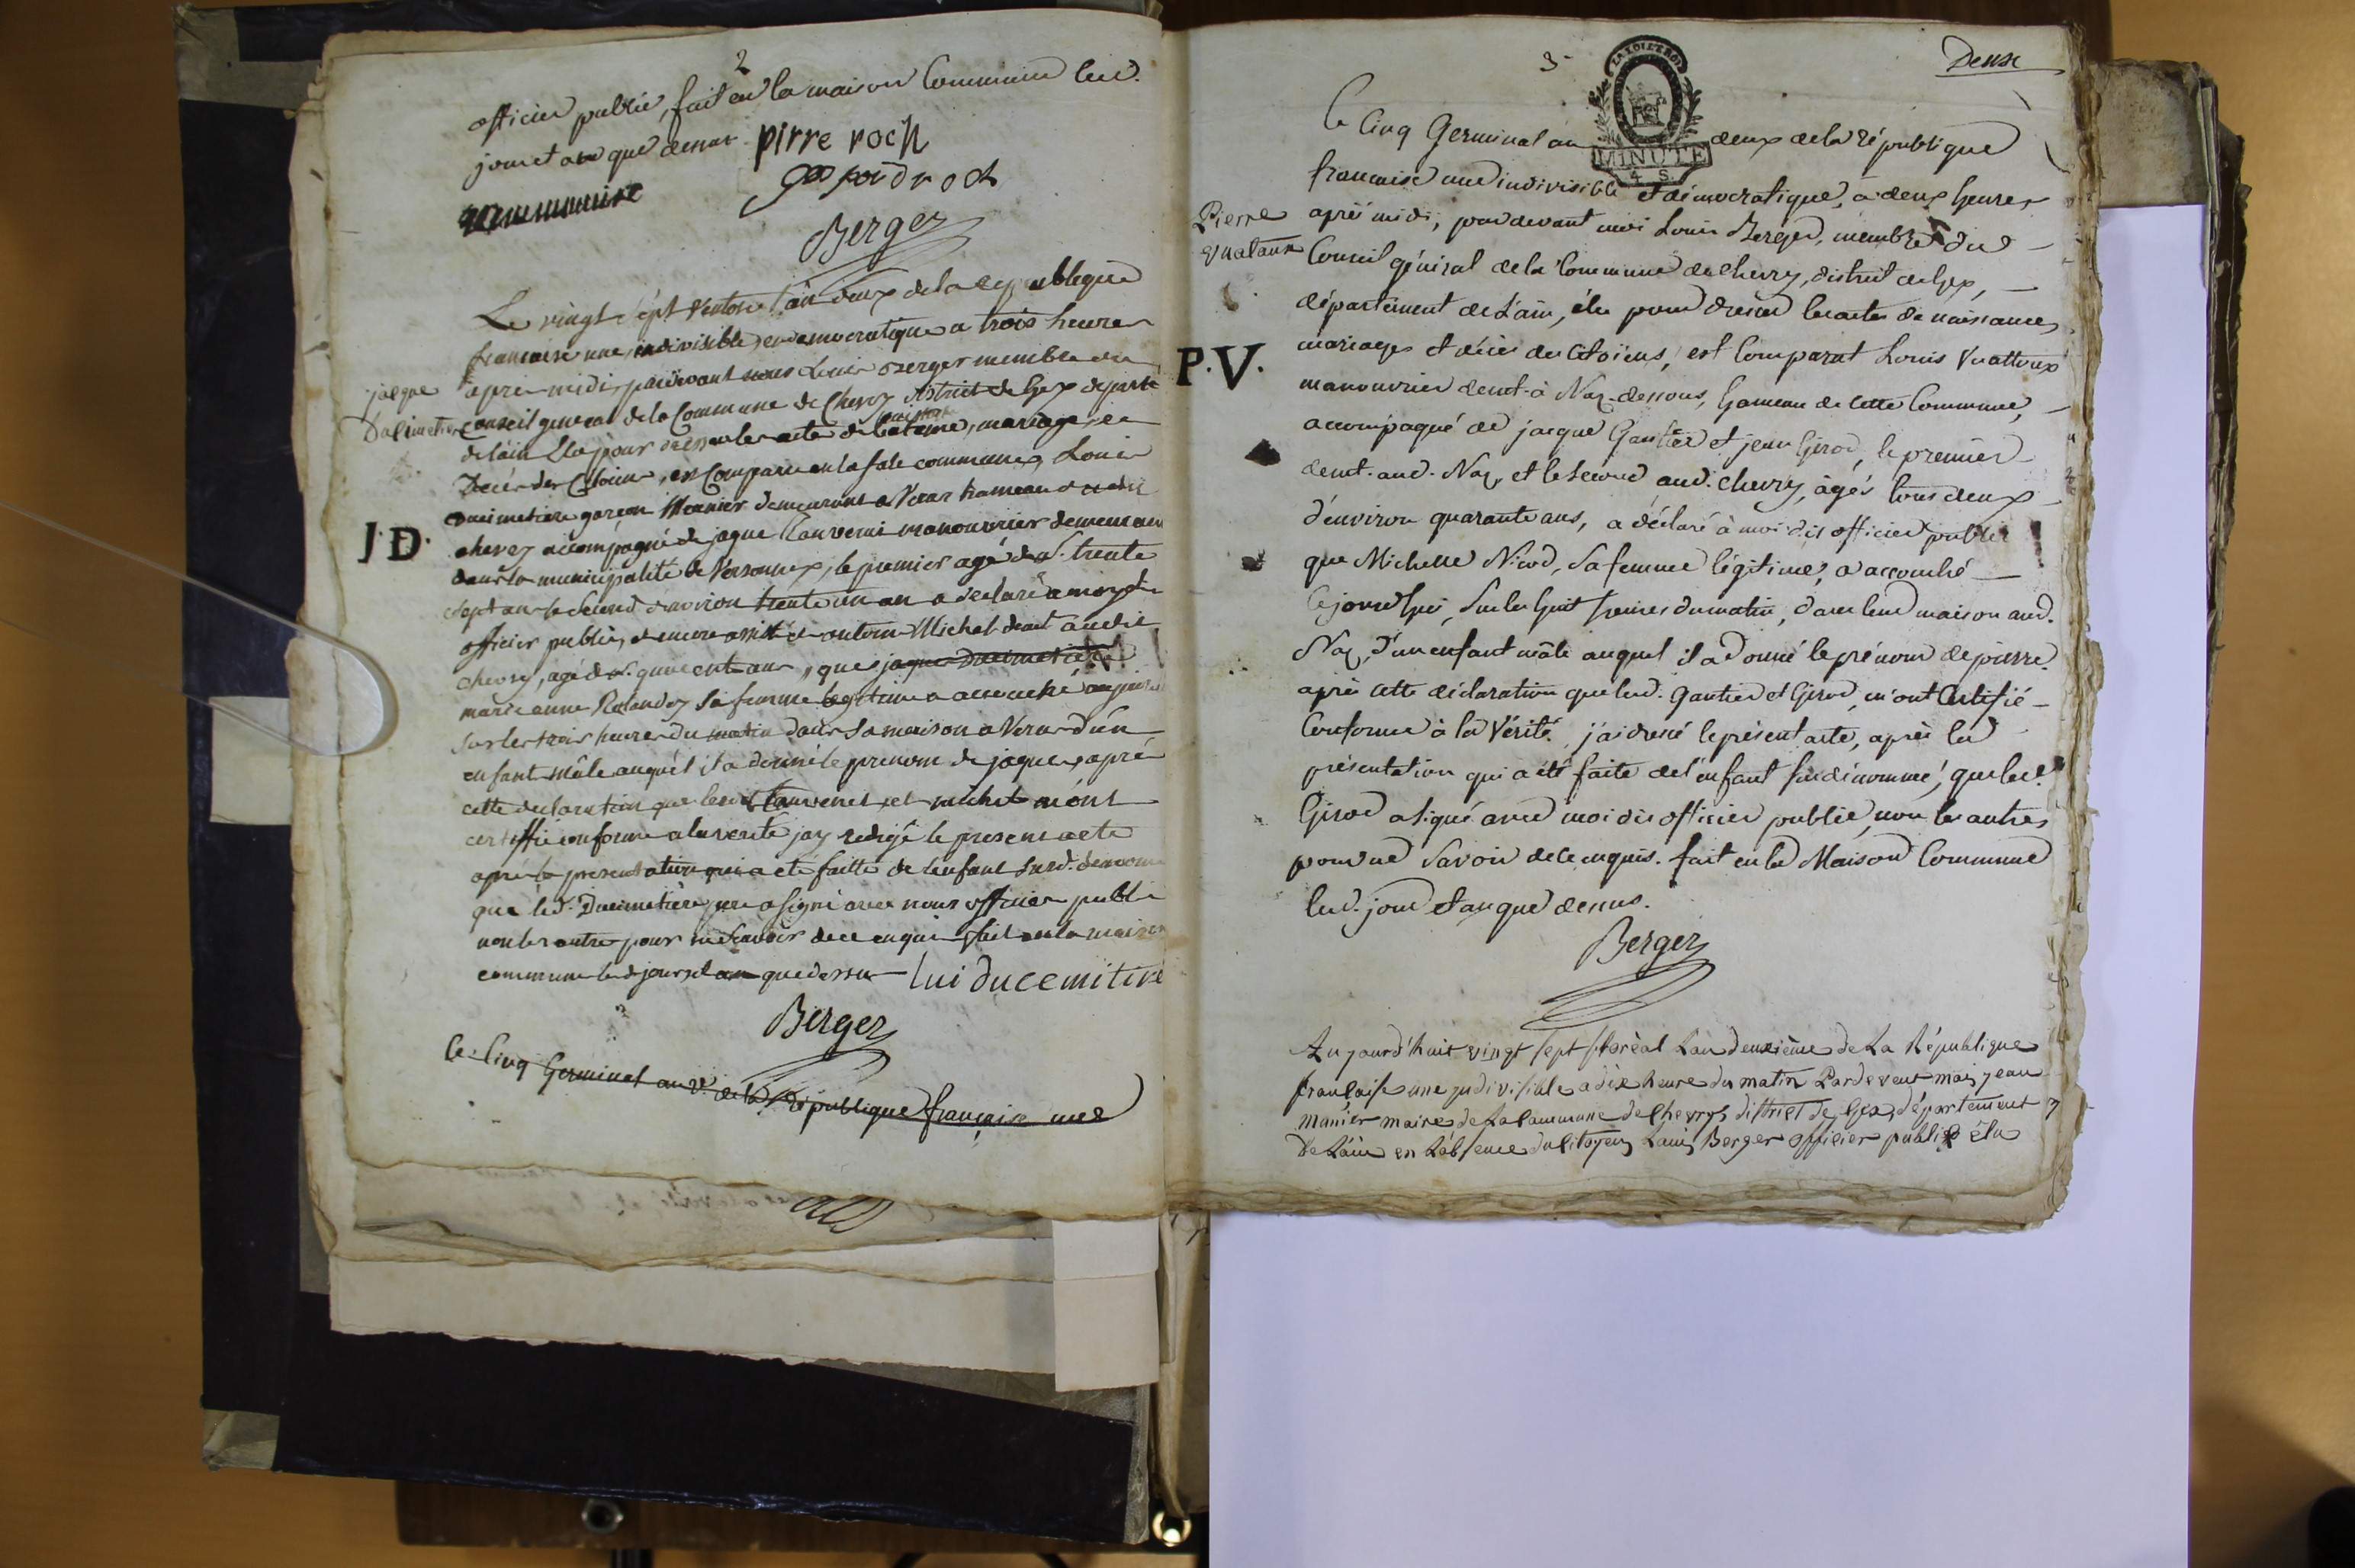 2
officier public, fait en la maison Commune led.
jour et an que dessus. pirre roch
roch
Berger
Le vingt sept Ventose l'an deux de la republique
francaise une, indivisible, et democratique a trois heures
jacque
Ducimetiere
apres midi, pardevant nous Louis Berger membre du
conseil general de la Commune de Chevry district de Gex departe
naissance
de lain Elu pour dresser les acte de bateme, mariage, et
Décés des Citoiens, est Comparu en la sale commune, Louis
Ducimetiere garçon Meunier demeurant a Veraz hameau dudit
J·D·
chevry accompagné de jaque Tauvernei manouvrier demeurant
dans la municipalité de Versonnex, le premier agé de trente
sept ans le second d'environ trente un an a declaré a moy dt
officier public, et encore assisté de antoine Michel demt audit
chevry, agé de quarente ans, que jaque Ducimetiere
marie anne Rolandoz sa femme legitime a accouché aujourd
sur les trois heures du matin dans sa maison a Veraz d'un
enfant mâle auquel il a donné le prenom de jaque, aprè
cette declaration que lesd Tauvernei et michel m'ont
certiffié conforme a la verité jay redigé le present acte
aprè la presentation qui a été faitte de lenfant susd. denommé
que led. Ducimetière père a signé avec nous officier public
non les autre pour ne scavoir de ce enquis fait en la maison
commune led jour et an que dessus lui ducemitire
Berger
le Cinq Germinal an 2e. de la République française une
3
Deux
LA LOI LE ROI
MINUTE
4. S.
le Cinq Germinal an deux de la république
francaise une indivisible et démocratique, à deux heures
Pierre
Vuataux
après midi, pardevant moi Louis Berger, membre du
Conseil général de la Commune de Chevry, district de Gex,
département de l'ain, élu pour dresser les actes de naissances,
P.V.
mariages et décès des Citoïens, est Comparut Louis Vuattoux
manouvrier demt à Naz-dessous, hameau de cette Commune,
accompagné de jacque Gautier et jean Girod, le premier
demt. aud. Naz, et le second aud. chevry, âgés tous deux
d'environ quarante ans, a déclaré à moi dit officier public
que Michelle Nicod, sa femme légitime, a accouché
cejourd'hui, sur les huit heures du matin, dans leur maison aud.
Naz, d'un enfant mâle auquel il a donné le prénom de pierre.
après cette déclaration que lesd. Gautier et Girod, m'ont Certifié
Conforme à la Vérité. j'ai dressé le présent acte, après la
présentation qui a été faite de l'enfant susdénommé, que led.
Girod a signé avec moi dit officier public, non les autres
pour ne savoir de ce enquis. fait en la Maison Commune
led. jour et an que dessus.
Berger
Aujourd'huit vingt sept floréal L'an deuxième de La République
française une indivisible a dix heure du matin Pardevent moi jean
manier maire de La Commune de Chevry district de Gex, département
De L'ain en L'absence du citoyen Louis Berger officier public élu